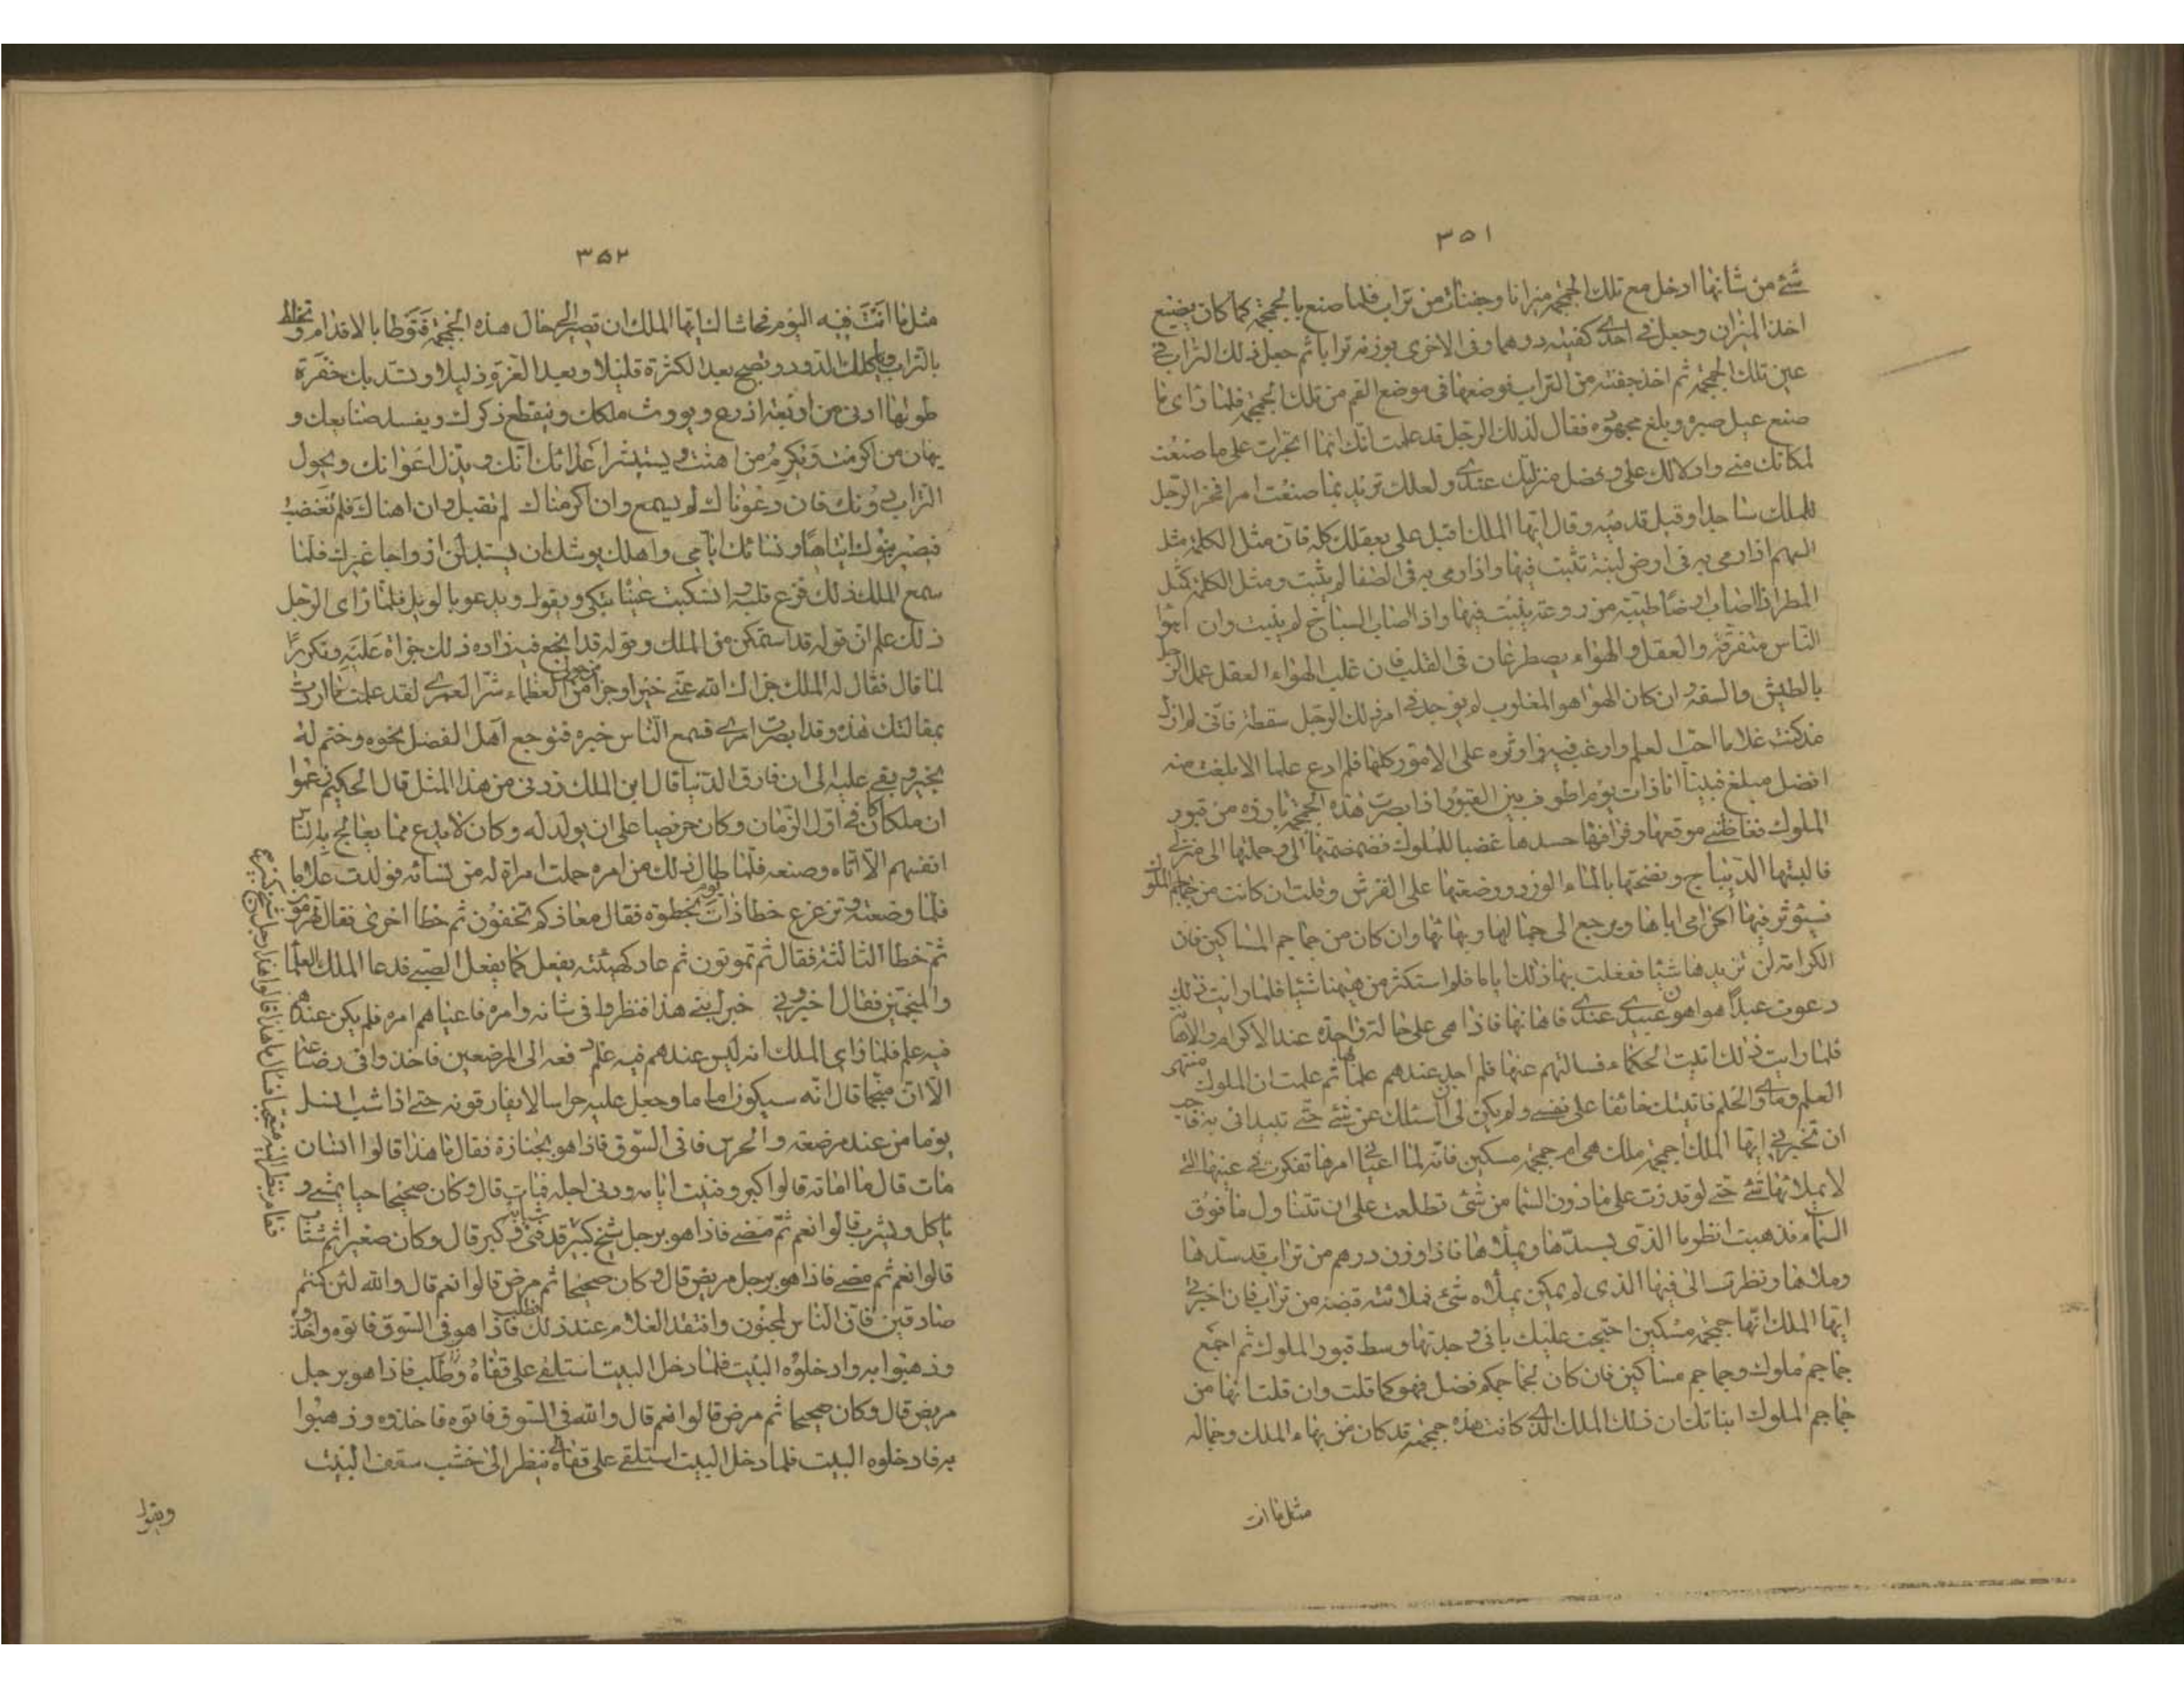 ٣٥١
شئ من شانها ادخل مع تلك الجمجمة ميزانا وجفنات من تراب فلما صنع بالجمجمة كما كان يصنع
اخذ الميزان وجعل في احدى كفتيه درهما وفى الاخرى بوزنه ترابا ثم جعل ذلك التراب في
عين تلك الجمجمة ثم اخذ جفنة من التراب فوضعها فى موضع الفم من تلك الجمجمة فلما راى ما
صنع عيل صبره وبلغ مجهوده فقال لذلك الرجل قد علمت انك انما اجترات على ما صنعت
لمكانك منى وادلالك على وفضل منزلتك عندى ولعلك تريد بما صنعت امرا فخر الرجل
للملك ساجدا وقبل قدميه وقال ايها الملك اقبل على بعقلك كله فان مثل الكلمة مثل
السهم اذا رمى به فى ارض لينة تثبت فيها واذا رمى به فى الصفا لم يثبت ومثل الكلمة كمثل
المطر اذا اصاب ارضا طيبة مزروعة ينبت فيها واذا اصاب السباخ لم ينبت وان اهوا
الناس متفرقة والعقل والهواء يصطرعان فى القلب فان غلب الهواء العقل عمل الرجل
بالطيش والسفه وان كان الهوا هو المغلوب لم يوجد فى امر ذلك الرجل سقطة فانى لم ازل
مذ كنت غلاما احب العلم وارغب فيه واوثره على الامور كلها فلم ادع علما الا بلغت منه
افضل مبلغ فبينا انا ذات يوم اطوف بين القبور اذا بصرت هذه الجمجمة بارزة من قبور
الملوك فغاظنى موقعها وفراقها جسدها غضبا للملوك فضممتها الى وحملتها الى منزلى
فالبستها الديباج ونضحتها بالماء الورد ووضعتها على الفرش وقلت ان كانت من جماجم الملوك
فسيؤثر فيها اكرامى اياها ويرجع الى جمالها وبهائها وان كان من جماجم المساكين فان
الكرامة لن تزيدها شيئا ففعلت بها ذلك اياما فلم استكثر من هيئها شيئا فلما رايت ذلك
دعوت عبدا هو اهون عبيدى عندى فاهانها فاذا هى على حالة واحدة عند الاكرام والاهانة
فلما رايت ذلك اتيت الحكماء فسالتهم عنها فلم اجد عندهم علما بها ثم علمت ان الملوك منتهى
العلم وماوى الحلم فاتيتك خائفا على نفسى ولم يكن لى ان اسئلك عن شئ حتى تبدانى به فاحب
ان تخبرنى ايها الملك اجمجمة ملك هى ام جمجمة مسكين فانه لما اعيانى امرها تفكرت فى عينها التى
لا يملاءها شئ حتى لو قدرت على ما دون السما من شئ تطلعت على ان تتناول ما فوق
السماء فذهبت انظر ما الذى يسدها ويملاها فاذا وزن درهم من تراب قد سدها
وملاها ونظرت الى فيها الذى لم يكن يملاه شئ فملائته قبضة من تراب فان اخبرتنى
ايها الملك انها جمجمة مسكين احتججت عليك بانى وجدتها وسط قبور الملوك ثم اجمع
جماجم ملوك وجماجم مساكين فان كان لجماجمكم فضل فهو كما قلت وان قلت انها من
جماجم الملوك انباتك ان ذلك الملك الذى كانت هذه جمجمته قد كان من بهاء الملك وجماله
مثل ما انت
٣٥٢
مثل ما انت فيه اليوم فحاشا لك ايها الملك ان تصير الى حال هذه الجمجمة فتوطا بالاقدام وتخلط
بالتراب وياكلك الدود وتصبح بعد الكثرة قليلا وبعد العزة ذليلا وتسد بك حفرة
طولها ادنى من اربعة اذرع ويورث ملكك وينقطع ذكرك ويفسد صنايعك و
يهان من اكرمت ويكرم من اهنت ويستبشر اعدائك ويذل اعوانك ويحول
التراب دونك فان دعوناك لم يسمع وان اكرمناك لم تقبل وان اهناك فلم تغضب
فيصير بنوك ايتاما ونسائك ايامى واهلك يوشك ان يستبدلن ازواجا غيرك فلما
سمع الملك ذلك فزع قلبه وانسكبت عيناه يبكى ويقول ويدعو بالويل فلما راى الرجل
ذلك علم ان قوله قد استمكن من الملك وقوله قد انجع فيه زاده ذلك جراة عليه وتكريرا
لما قال فقال له الملك جزاك الله عنى خيرا وجزا من حولى من العظماء شرا لعمرى لقد علمت ما اردت
بمقالتك هذه وقد ابصرت امرى فسمع الناس خبره فتوجع اهل الفضل نحوه وختم له
بخير وبقى عليه الى ان فارق الدنيا قال ابن الملك زدنى من هذا المثل قال الحكيم زعموا
ان ملكا كان فى اول الزمان وكان حريصا على ان يولد له وكان لا يدع مما يعالج به الناس
انفسهم الا اتاه وصنعه فلما طال ذلك من امره حملت امراة له من نسائه فولدت غلاما
فلما وضعته وترعرع خطا ذات يوم خطوة فقال معادكم تجفون ثم خطا اخرى فقال تهرمون
ثم خطا الثالثة فقال ثم تموتون ثم عاد كهيئته يفعل كما يفعل الصبى فدعا الملك العلما
والمنجمين فقال اخبرونى خبر ابنى هذا فنظروا فى شانه وامره فاعياهم امره فلم يكن عندهم
فيه علم فلما راى الملك انه ليس عندهم فيه علم دفعه الى المرضعين فاخذوا فى رضاعه
الا ان منجما قال انه سيكون اماما وجعل عليه حراسا لا يفارقونه حتى اذا شب انسل
يوما من عند مرضعه والحرس فاتى السوق فاذا هو بجنازة فقال ما هذا قالوا انسان
مات قال ما اماته قالوا كبر وفنيت ايامه ودنى اجله فمات قال وكان صحيحا حيا يمشى و
ياكل ويشرب قالوا نعم ثم مضى فاذا هو برجل شيخ كبير
فقام ينظر اليه متعجبا منه فقال ما هذا قالوا هذا رجل شيخ كبير
قد فنى شبابه وكبر قال وكان صغيرا ثم شاب
قالوا نعم ثم مضى فاذا هو برجل مريض قال وكان صحيحا ثم مرض قالوا نعم قال والله لئن كنتم
صادقين فان الناس لمجنون وافتقد الغلام عند ذلك فطلب فاذا هو فى السوق فاتوه واخذوه
وذهبوا به وادخلوه البيت فلما دخل البيت استلقى على قفاه وطلب فاذا هو برجل
مريض قال وكان صحيحا ثم مرض قالوا نعم قال والله فى السوق فاتوه فاخذوه وذهبوا
به فادخلوه البيت فلما دخل البيت استلقى على قفاه ينظر الى خشب سقف البيت
ويقول